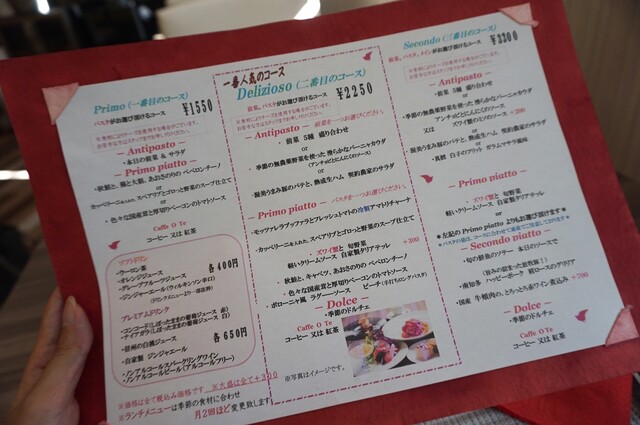 Primo (一番目のコース)
¥1550
パスタがお選び頂けるコース
Antipasto
・本日の前菜 & サラダ
Primo piatto
・秋鮭と、舞と大葉、あおさのりの ペペロンチーノ
or
・カッペリーニを入れた、スペアリブとゴロッと野菜のスープ仕立て
or
・色々な国産茸と厚切りベーコンのトマトソース
Caffe O Te
コーヒー 又は 紅茶
ソフトドリンク
・ウーロン茶
・オレンジジュース
・グレープフルーツジュース
・ジンジャーエール(ウィルキンソン辛口)
(ドリンクメニューより一部抜粋)
各400円
プレミアムドリンク
・コンコード(しぼったままの葡萄ジュース 赤)
・ナイアガラ(しぼったままの葡萄ジュース 白)
・信州の白桃ジュース
・自家製 ジンジャエール
・ノンアルコールスパークリングワイン
・ノンアルコールビール(アルコールフリー)
各650円
※価格は全て税込み価格です ※大盛は全て+300
※ランチメニューは季節の食材に合わせ
月2回ほど変更致します
一番人気のコース
Delizioso (二番目のコース)
前菜、パスタがお選び頂けるコース
¥2250
Antipasto 前菜を一つお選びください。
・前菜 5種 盛り合わせ
or
・季節の無農薬野菜を使った 滑らかなバーニャカウダ
(アンチョビとにんにくのソース)
or
・渥美うまみ豚のパテと、熟成生ハム 契約農家のサラダ
Primo piatto パスタを一つお選びください。
・モッツァレラブッファラとフレッシュトマトの冷製アマトリチャーナ
・カッペリーニを入れた、スペアリブとゴロッと野菜のスープ仕立て
・ズワイ蟹と 旬野菜
軽いクリームソース 自家製タリアテッレ +300
・秋鮭と、キャベツ、あおさのりの ペペロンチーノ
・色々な国産茸と厚切りベーコンのトマトソース
・ボローニャ風 ラグーソース ピーチ(手打ちロングパスタ)
Dolce
・季節のドルチェ
Caffe O Te
コーヒー 又は 紅茶
※写真はイメージです。
Secondo (三番目のコース)
前菜、パスタ、メインがお選び頂けるコース
¥3300
Antipasto
・前菜 5種 盛り合わせ
or
・季節の無農薬野菜を使った 滑らかなバーニャカウダ
(アンチョビとにんにくのソース)
又は ズワイ蟹のとソース +200
or
・渥美うまみ豚のパテと、熟成生ハム 契約農家のサラダ
or
・真鱈 白子のフリット
Primo piatto
・ズワイ蟹と 旬野菜
軽いクリームソース 自家製タリアテッレ
or
★左記の Primo piatto よりもお選び頂けます★
Secondo piatto
・旬の鮮魚のソテー 本日のソースで
or
(旨みの詰まった銘柄豚!)
・南知多 ハッピーポーク 肩ロースのグリリア
or
・国産 牛頬肉の、とろっとろ赤ワイン煮込み +700
Dolce
・季節のドルチェ
Caffe O Te
コーヒー 又は 紅茶